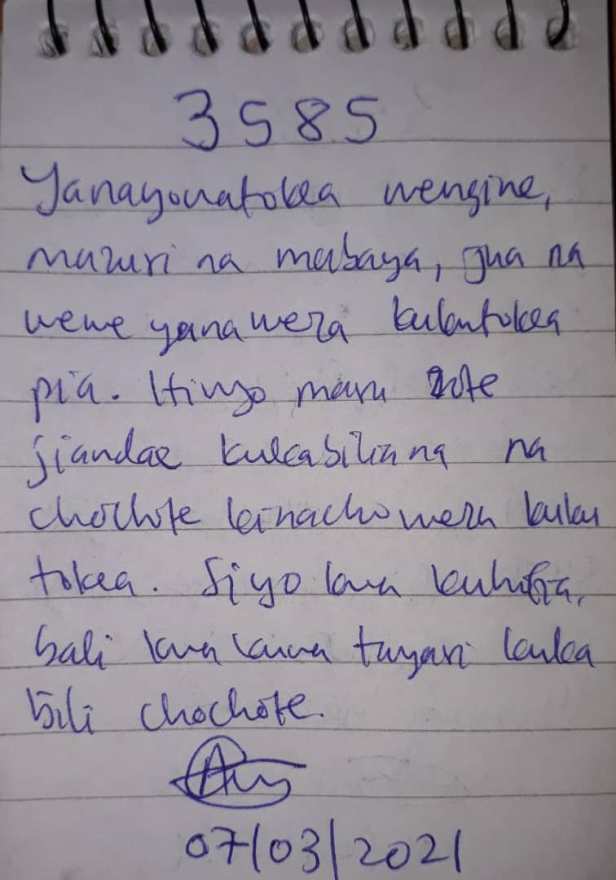 3585
Yanayowatokea wengine,
mazuri na mabaya, jua na
wewe yanaweza kukutokea
pia. Hivyo muda wote
jiandae kukabiliana na
chochote kinachoweza kuku
tokea. Siyo kwa kuhofia,
bali kwa kuwa tayari kuka
bili chochote.
07/03/2021